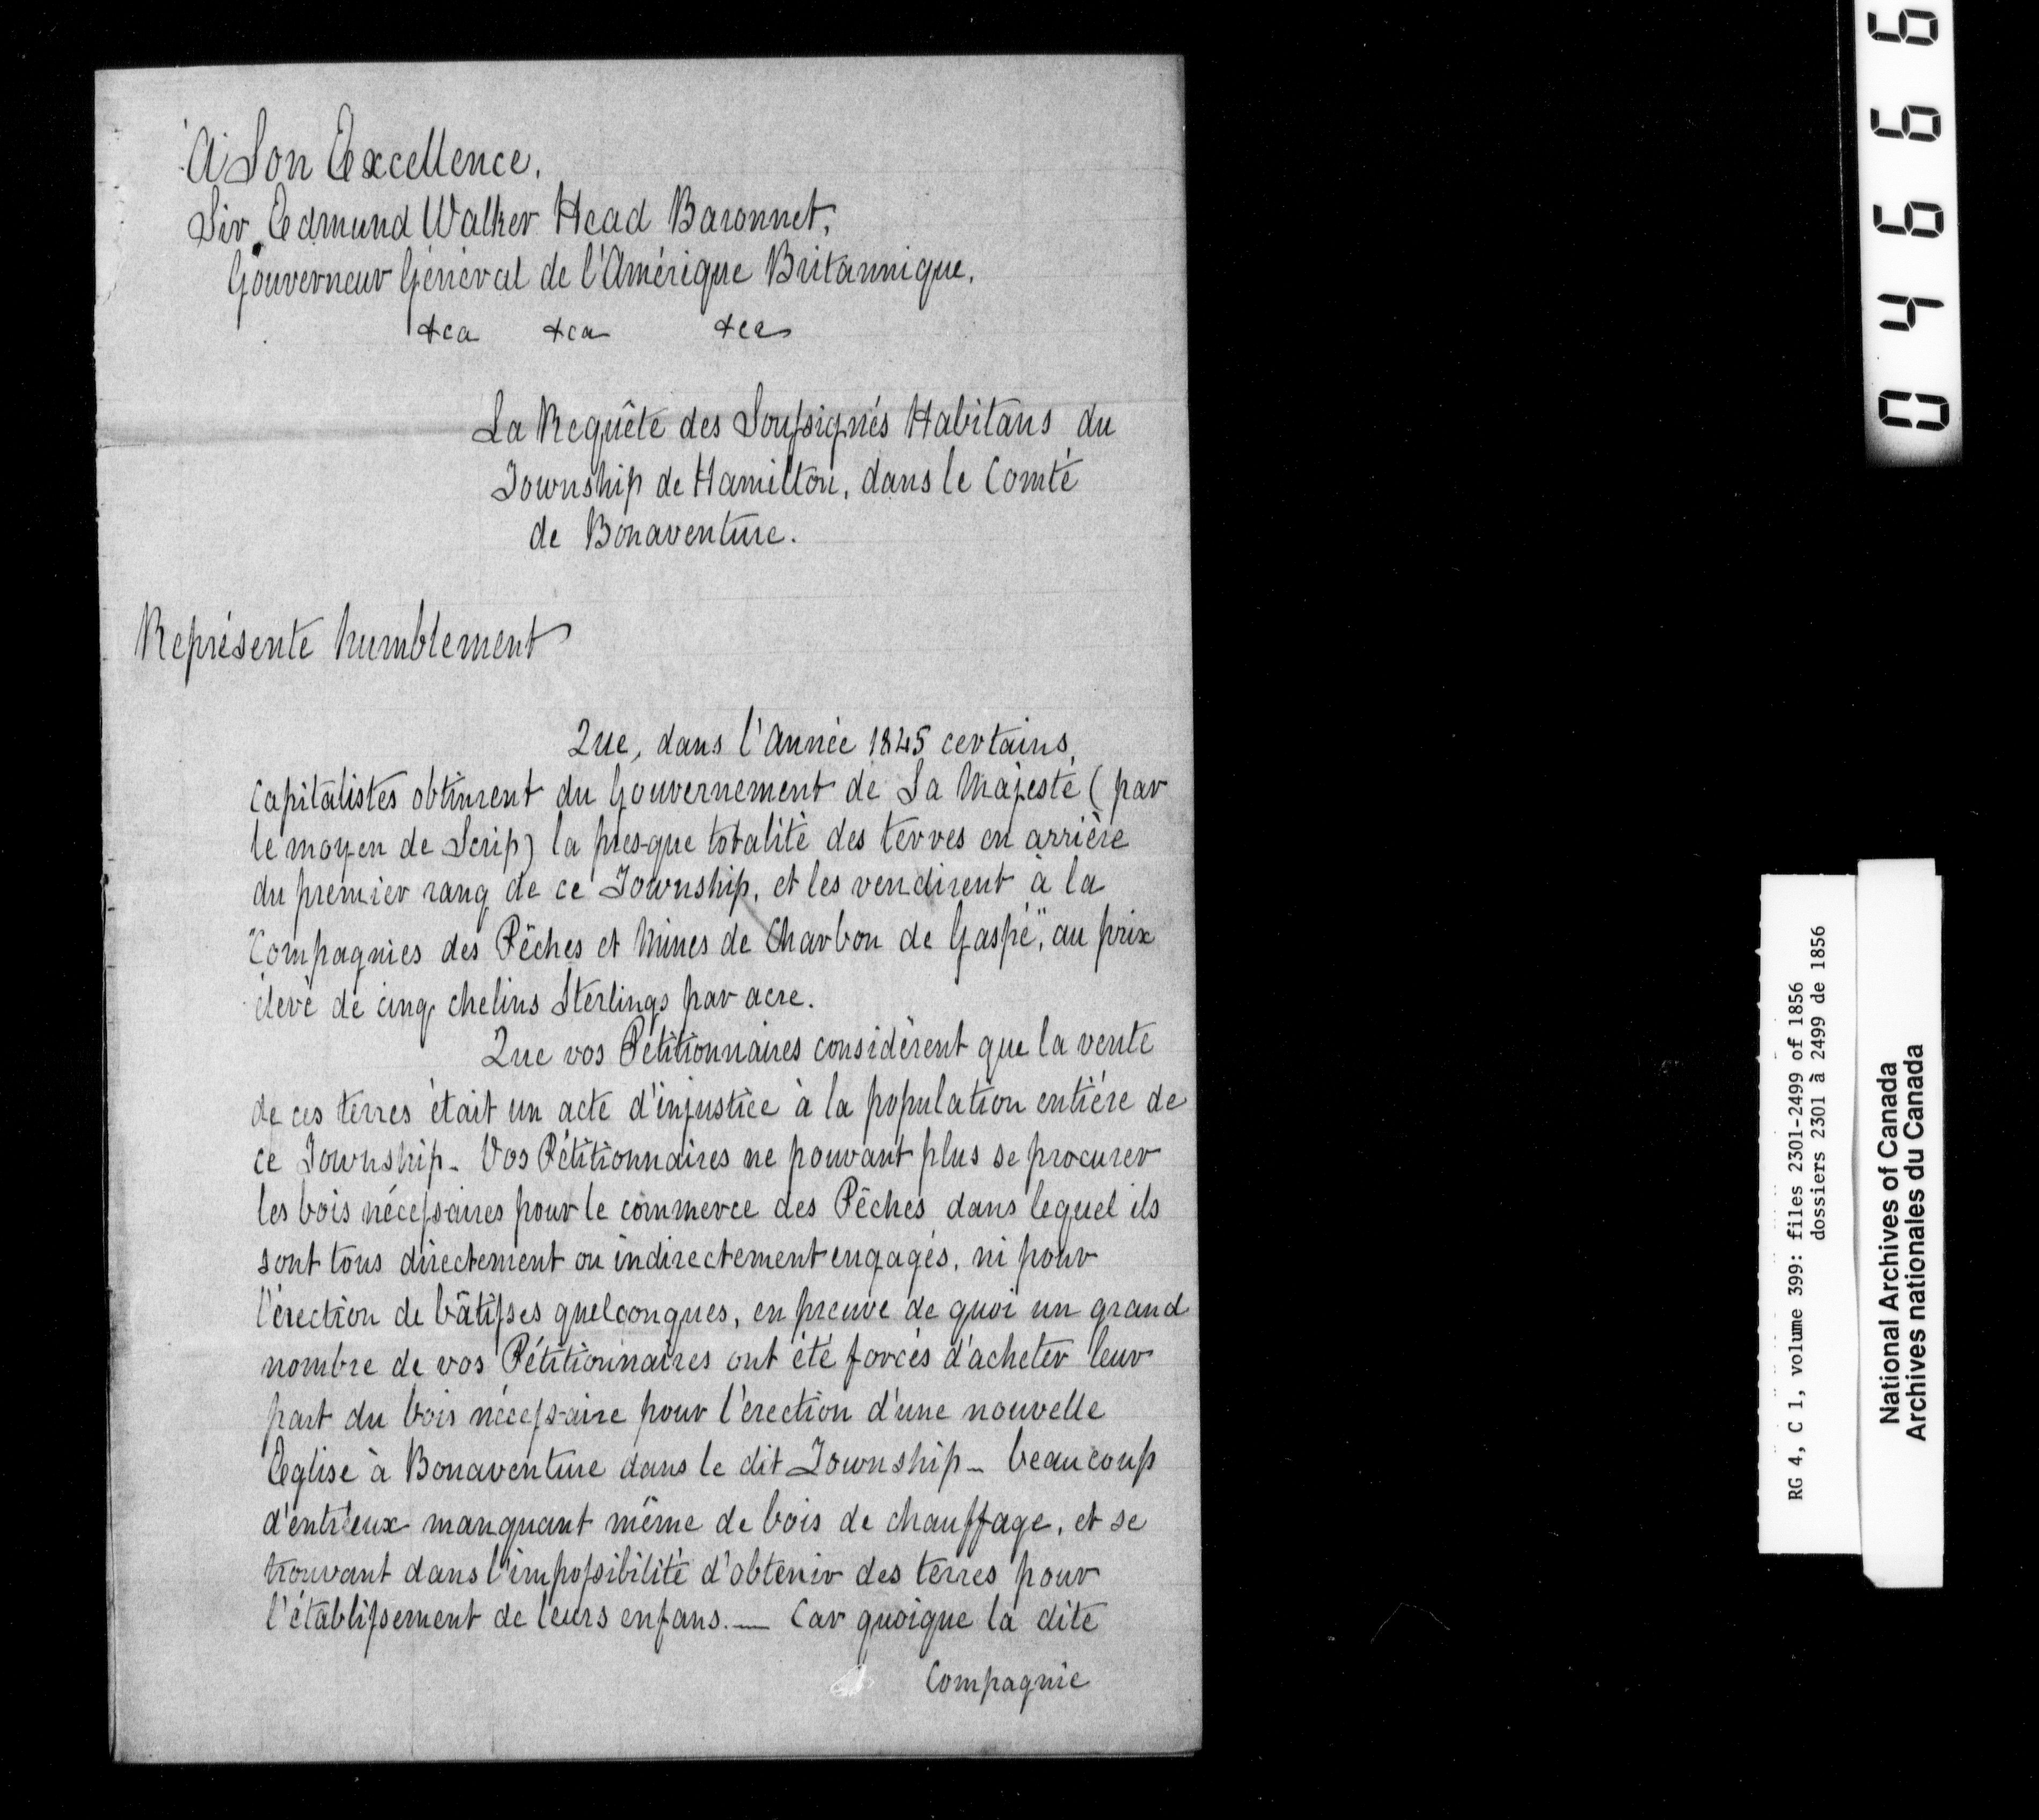 A Son Excellence,
Sir Edmund Walker Head Baronnet,
Gouverneur Général de l'Amérique Britannique,
&ca &ca &ca
La Requête des Soussignés Habitans du
Township de Hamilton, dans le Comté
de Bonaventure.
Représente humblement
Que, dans l'Année 1845 certains
Capitalistes obtinrent du Gouvernement de Sa Majesté (par
le moyen de Scrip) la presque totalité des terres en arrière
du premier rang de ce Township, et les vendirent à la
"Compagnies des Pêches et Mines de Charbon de Gaspé", au prix
élevé de cinq chelins Sterlings par acre.
Que vos Pétitionnaires considèrent que la vente
de ces terres était un acte d'injustice à la population entière de
ce Township_ Vos Pétitionnaires ne pouvant plus se procurer
les bois nécessaires pour le commerce des Pêches dans lequel ils
sont tous directement ou indirectement engagés, ni pour
l'érection de bâtisses quelconques, en preuve de quoi un grand
nombre de vos Pétitionnaires ont été forcés d'acheter leur
part du bois nécessaire pour l'érection d'une nouvelle
Eglise à Bonaventure dans le dit Township_ beaucoup
d'entr'eux manquant même de bois de chauffage, et se
trouvant dans l'impossibilité d'obtenir des terres pour
l'établissement de leurs enfans.__ Car quoique la dite
Compagnie
04666
RG 4, C 1, volume 399: files 2301-2499 of 1856
dossiers 2301 à 2499 de 1856
National Archives of Canada
Archives nationales du Canada